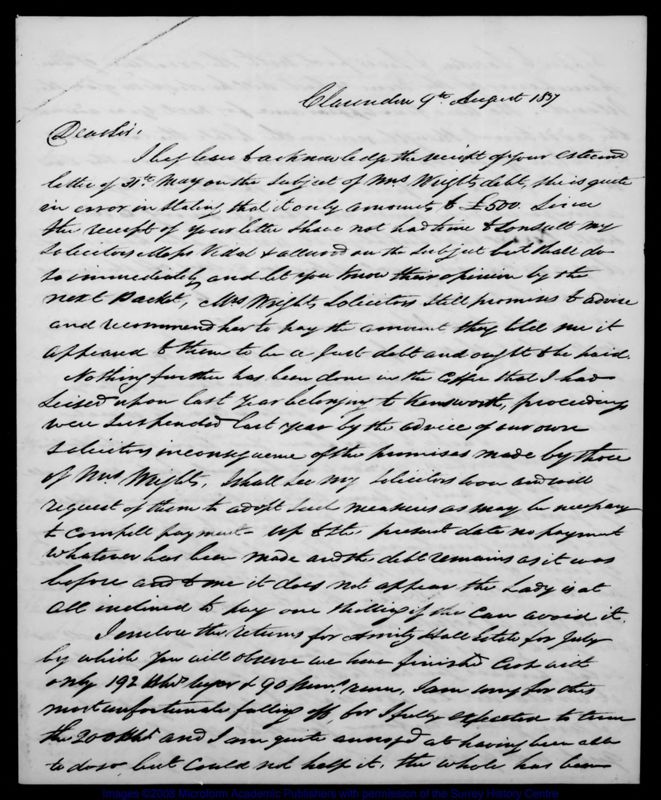 Clarendon 9th August 1837
Dear Sir,
I beg leave to acknowledge the receipt of your esteemed
letter of 31st May on the subject of Mrs Wright's debt, she is quite
in error in stating that it only amounts to £500. Since
the receipt of your letter I have not had time to consult my
Solicitors Messrs Vidal & attwood on the subject but shall do
so immediately and let you know their opinion by the
next Packet, Mrs Wrights Solicitors still promises to advise
and recommend her to pay the amount they told me it
appeared to them to be a Just debt and ought to be paid.
Nothing further has been done in the Coffee that I had
seized upon last Year belonging to Kensworth, proceedings
were suspended last year by the advice of our own
Solicitors in consequence of the promises made by those
of Mrs Wrights, I shall see my Solicitors soon and will
request of them to adopt such measures as may be necessary
to compell payment - up to the present date no payment
whatever has been made and the debt remains as it was
before and to me it does not appear the Lady is at
all inclined to pay one shilling if she can avoid it.
I enclose the returns for Amity Hall Estate for July
by which you will observe we have finished Crop with
only 192 Hhds sugar & 90 Puns rum, I am sorry for this
most unfortunate falling off, for I fully expected to turn
the 200 Hhds and I am quite annoyed at having been able
to do so but could not help it. the whole has been
Images ©2008 Microform Academic Publishers with permission of the Surrey History Centre